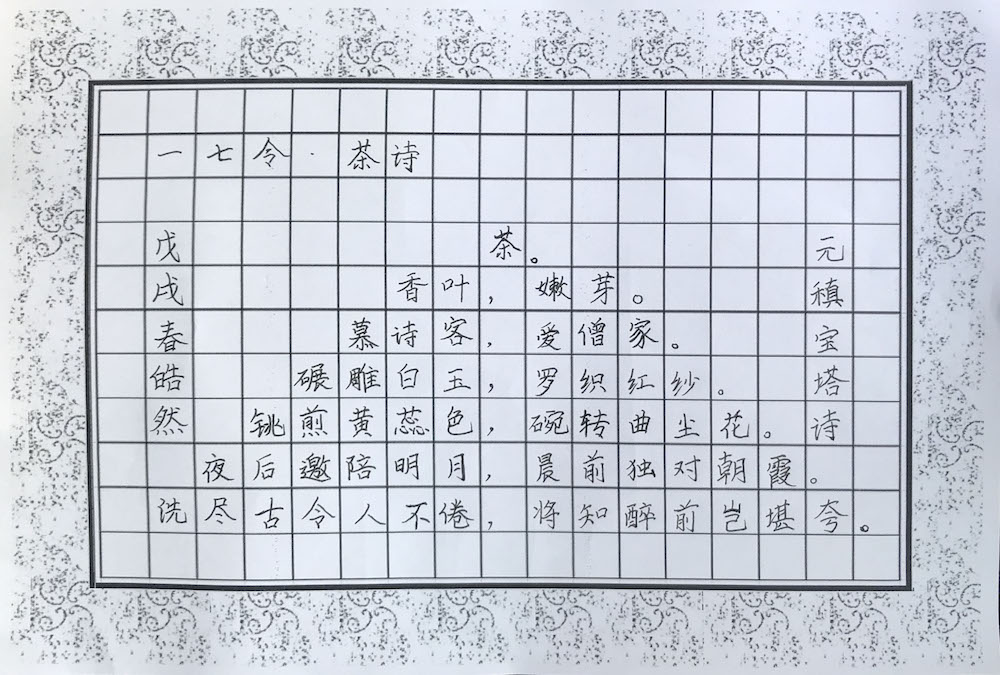 一七令·茶诗
茶。
香叶，嫩芽。
慕诗客，爱僧家。
碾雕白玉，罗织红纱。
铫煎黄蕊色，碗转曲尘花。
夜后邀陪明月，晨前独对朝霞。
洗尽古令人不倦，将知醉前岂堪夸。
元稹宝塔诗
戊戌春皓然